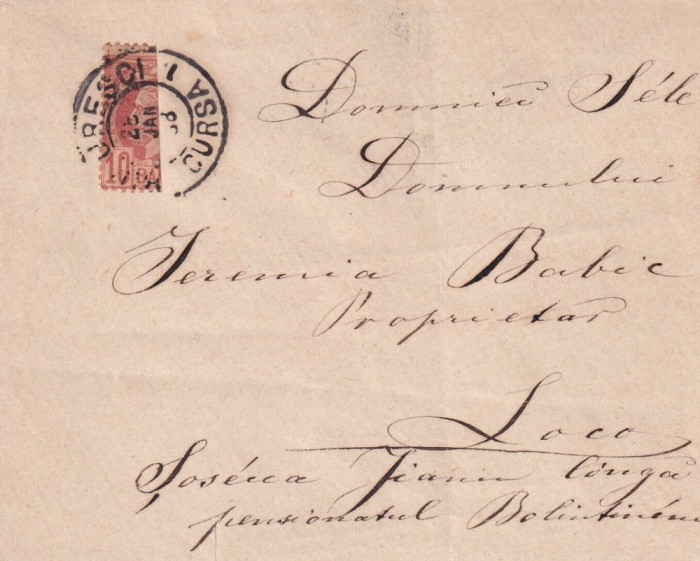 URESCI 1
CURSA 1
25
JAN
10 BA
Domniei Séle
Domnului
Jeremia Babic
Proprietar
Loco
Șoséua Jianu lînga
pensionatul Bolintinénu